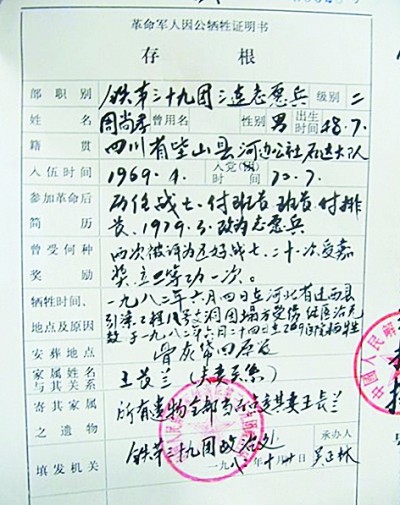 革命军人因公牺牲证明书
存根
部职别 铁第三十九团三连志愿兵 级别 二
姓名 周尚孝 曾用名 性别 男 出生时间 48.7.
籍贯 四川省 山县河边公社 大队
入伍时间 1969.4. 入党时间 72.7.
参加革命后简历 历任战士、付班长、班长、付排
长、1979.3.改为志愿兵
曾受何种奖励 两次被评为五好战士、二十次受嘉
奖,立三等功一次。
牺牲时间、地点及原因 一九八二年六月四日在河北省迁西县
引滦工程八号支洞因塌方受伤 医治无
效于一九八二年六月二十四日在 牺牲
安葬地点 骨灰带回原
家属姓名与其关系 王长兰(夫妻关系)
寄其家属之遗物 所有遗物全部 其妻王长兰
填发机关 铁第三十九团政治处
一九八 年十月 日 承办人 吴正林
中国人民解